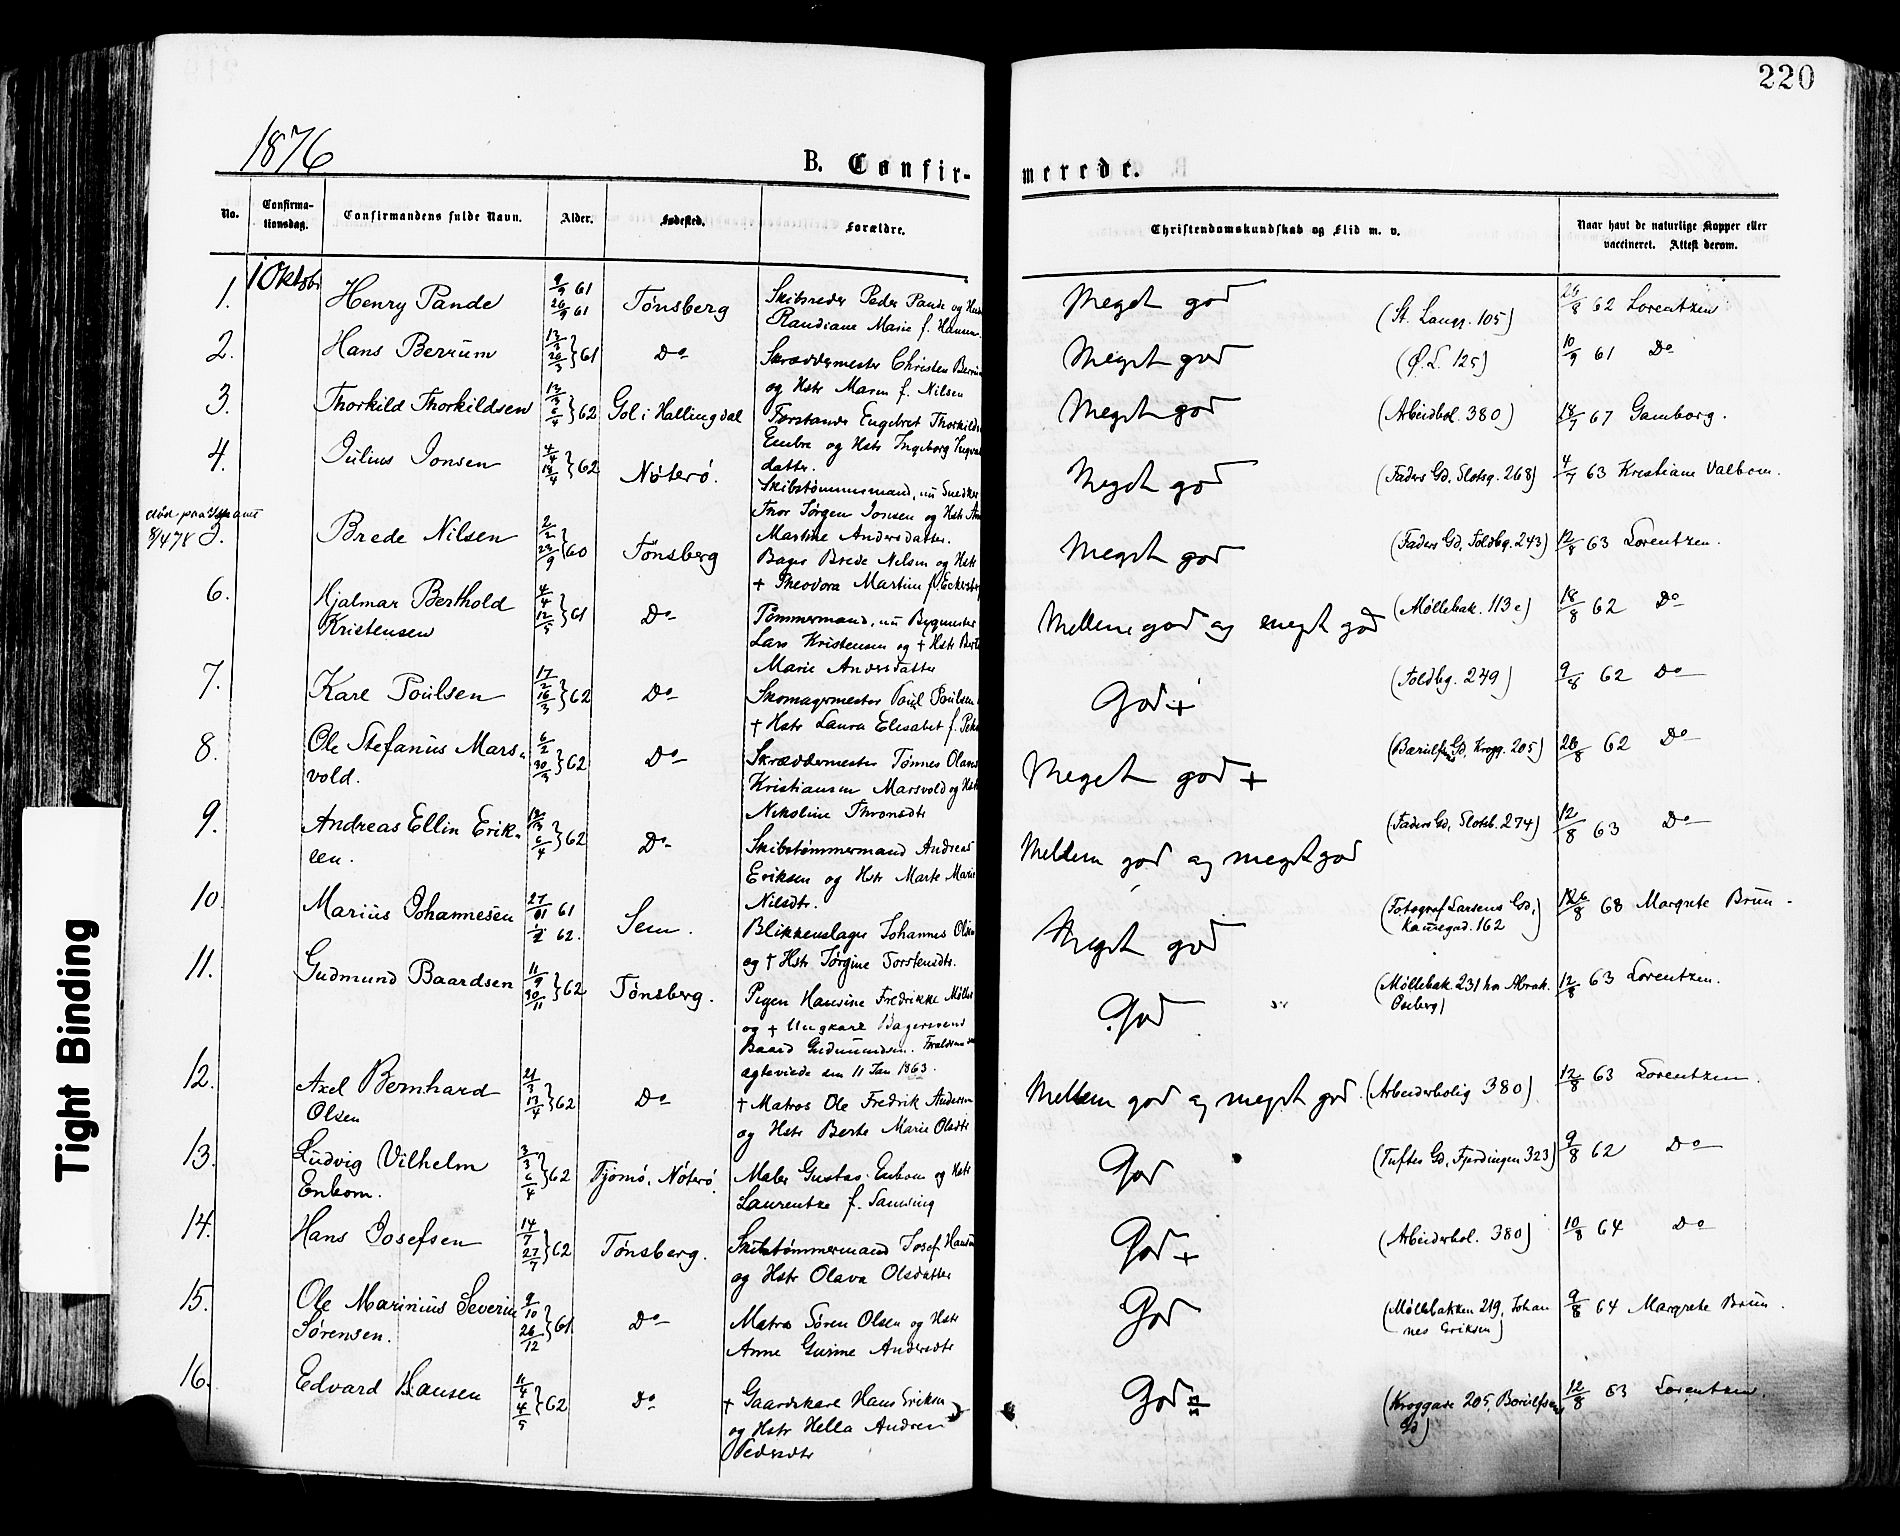 220
1876
B. Confir-
merede.
No.
Confirma-
tionsdag.
Confirmandens fulde Navn.
Alder.
Fødested.
Forældre.
Christendomskundskab og Flid m. v.
Naar havt de naturlige Kopper eller
vaccineret. Attest derom.
1 Oktobr
1. Henry Pande 9/9 61 Tønsberg Skibsreder Peder Pande og
26/9 61 Randiane Marie f. Hansen
Meget god (St. Langg. 105) 26/8 62 Lorentzen
2. Hans Berrum 61 Do Skræddermester Christen
og Hstr Maren f. Nilsen
Meget god (Ø.L. 125) 10/9 61 Do
3. Thorkild Thorkildsen 6/4 62 Gol i Hallingdal Engebret
og Hstr Ingeborg
datter.
Meget god (Arbeidbol. 380) 18/7 67 Gamborg.
4. Julius Jonsen 4/4 14/4 62 Nøterø. Skibstømmermand, nu Snedker
Thor Jørgen Jonsen og Hstr
Martine Andersdatter.
Meget god (Faders Gd, Slotsg. 268) 4/7 63 Kristiane Valbom.
død
8/4 78
Brede Nilsen 2/2 23/9 60 Tønsberg Bager Brede Nilsen og Hstr
+ Theodora Martine f.
Meget god (Faders Gd, Toldbg. 243) 12/8 63 Lorentzen.
6. Hjalmar Berthold 4/4 12/5 61 Do Tømmermand, nu Bygmester
Kristensen Lars Kristensen og + Hstr
Marie Andersdatter
Mellem god og meget god (Møllebak. 113 e) 18/8 62 Do
7. Karl Poulsen 17/2 16/3 62 Do Skomagermester Poul Poulsen
+ Hstr Laura Elisabet f.
God + (Toldbg. 249) 9/8 62 Do
8. Ole Stefanus Mars- 6/2 30/3 62 Do Skræddermester Tønnes
vold. Kristiansen Marsvold og Hstr
Nikoline
Meget god + Gd, Krogg. 205) 26/8 62 Do
9. Andreas Ellin Erik- 6/4 62 Do Skibstømmermand Andreas
sen. Eriksen og Hstr Marte Marie
Nilsdtr.
Mellem god og meget god (Faders Gd, Slotsb. 274) 12/8 63 Do
10. Marius Johannesen 61 Sem. Blikkenslager Johannes Olsen
62. og + Hstr Jørgine Torstensdtr.
Meget god (Fotograf Larsens Gd, 68 Margrete Brun-
162
11. Gudmund Baardsen 11/9 30/11 62 Tønsberg. Pigen Hansine Fredrikke Møller
og + Ungkarl Bagersvend
Baard Gudmundsen.
ægteviede den 11 Jan 1863.
God (Møllebak. 231 hos 12/8 63 Lorentzen.
12. Axel Bernhard 21/3 13/4 62 Do + Matros Ole Fredrik Andersen
Olsen og Hstr Berte Marie Olsdtr
Mellem god og meget god. (Arbeiderbolig 380) 12/8 63 Lorentzen.
13. Ludvig Vilhelm 3/3 6/4 62 Tjømø, Nøterø. Maler Gustav Enbom og Hstr
Enbom. Laurentze f. Samsing
God (Tuftes Gd, Fjerdingen 323) 9/8 62 Do
14. Hans Josefsen 14/7 27/7 62 Tønsberg. Skibstømmermand Josef Hansen
og Hstr Olava Olsdatter
God + (Arbeiderbol. 380) 10/8 64 Do
15. Ole Marinius Severin 9/10 26/12 61 Do Matros Søren Olsen og Hstr
Sørensen. Anne Gurine Andersdtr
God (Møllebakken 219, Johan 9/8 64 Margrete Brun.
nes Eriksen)
16. Edvard Hansen 11/4 4/5 62 Do + Gaardskarl Hans Eriksen
og Hstr Hella Andrea
Pedersdtr
God (Kroggade 205, 12/8 63 Lorentzen.
Gd)
Tight Binding